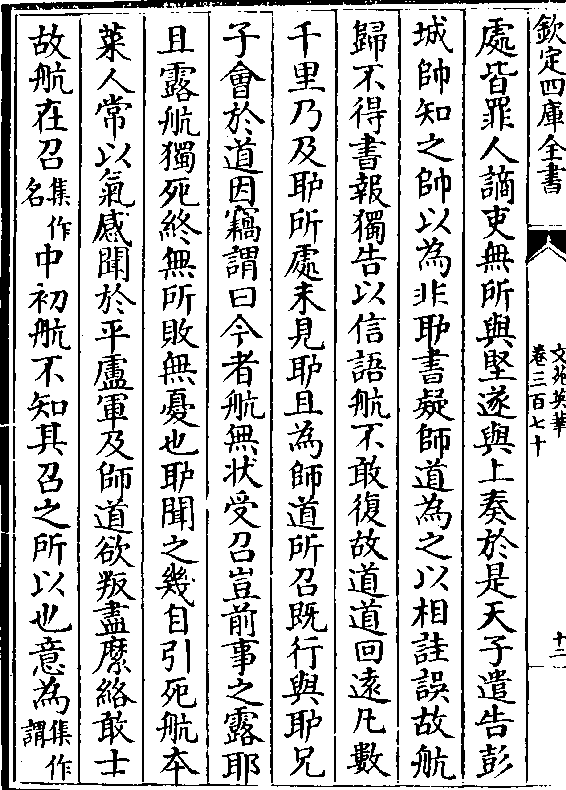 欽定四庫全書
文苑英華
卷三百七十
十二
處皆罪人謫吏無所與堅遂與上奏於是天子遣告彭
城帥知之帥以為非耶書疑師道為之以相詿誤故航
歸不得書報獨告以信語航不敢復故道道回遠凡數
千里乃及耶所處未見耶且為師道所召既行與耶兄
子會於道因竊謂曰今者航無狀受召豈前事之露耶
且露航獨死終無所敗無憂也耶聞之幾自引死航本
萊人常以氣感聞於平盧軍及師道欲叛盡縻絡敢士
故航在召集作名中初航不知其召之所以也意為集作謂